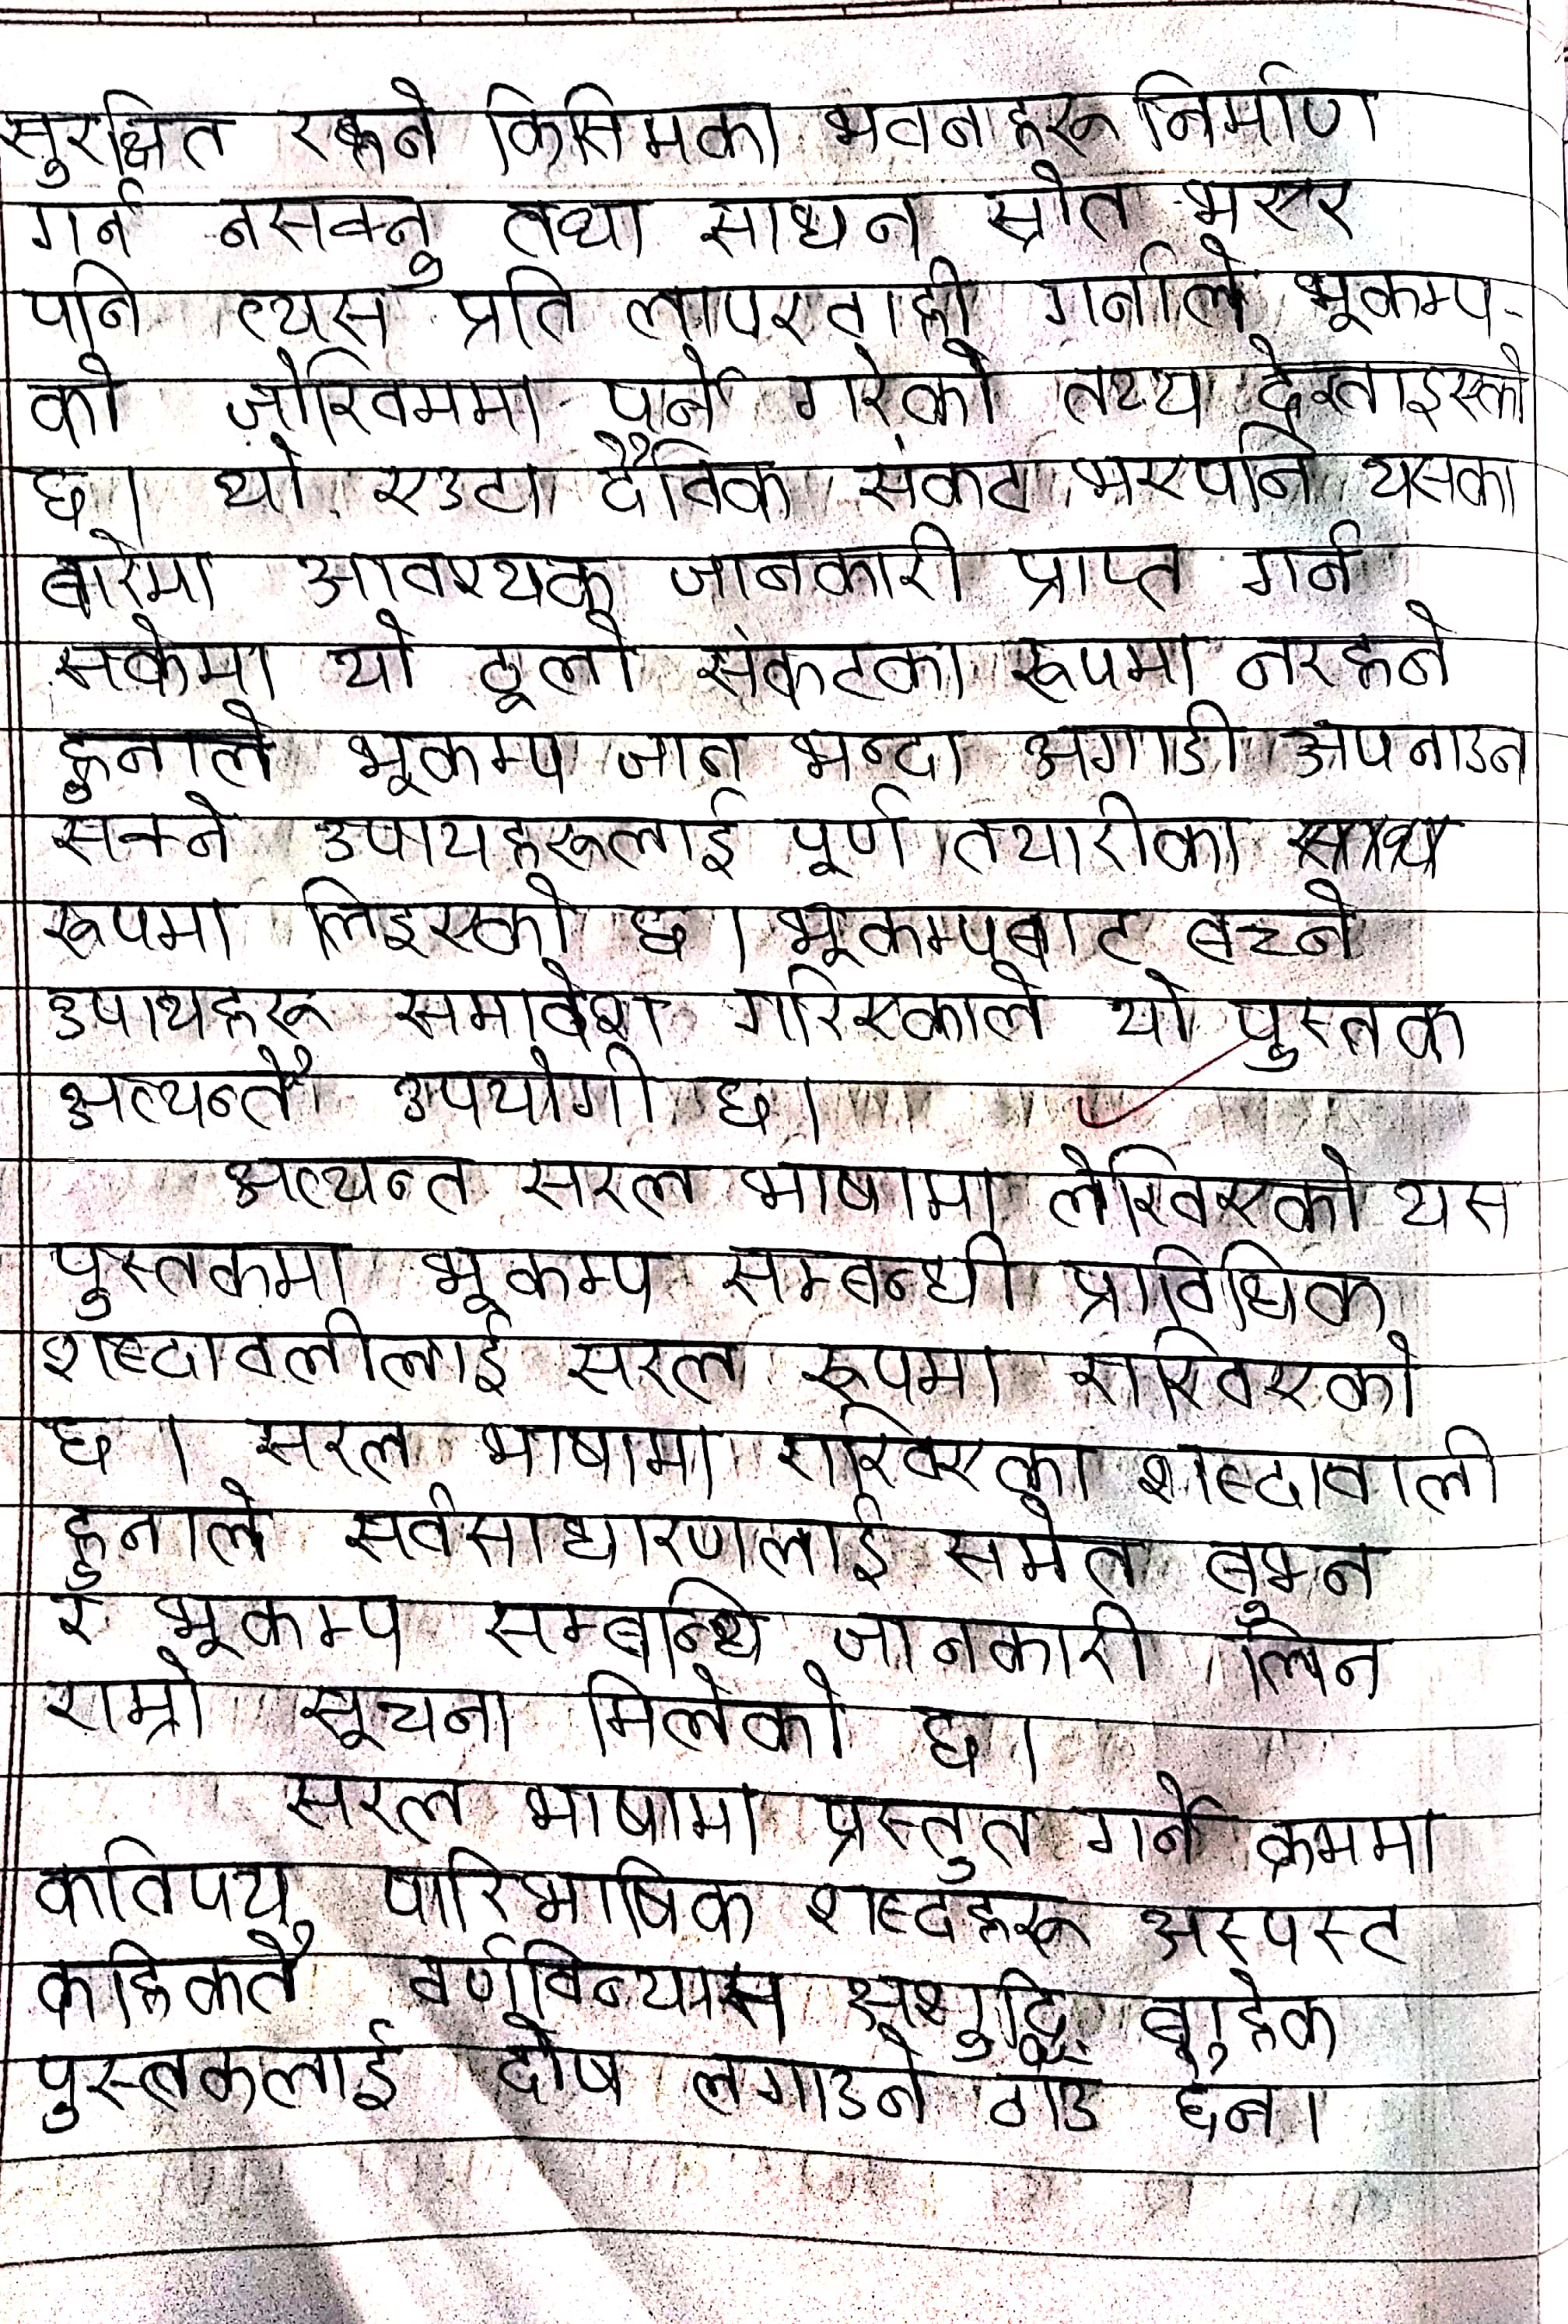 सुरक्षित रहने किसिमका भवनहरू निर्माण
गर्न नसक्नु तथा साधन स्रोत भएर
पनि त्यस प्रति लापरवाही गर्नाले भूकम्प-
को जोखिममा पर्ने गरेको तथ्य देखाइएको
छ। यो एउटा दैविक संकट भएपनि यसका
बारेमा आवश्यक जानकारी प्राप्त गर्न
सकेमा यो ठूलो संकटका रूपमा नरहने
हुनाले भूकम्प जान भन्दा अगाडी अपनाउन
सक्ने उपायहरूलाई पूर्ण तयारीका
रूपमा लिइएको छ। भूकम्पबाट बच्ने
उपायहरू समावेश गरिएकाले यो पुस्तक
अत्यन्तै उपयोगी छ।
अत्यन्त सरल भाषामा लेखिएको यस
पुस्तकमा भूकम्प सम्बन्धी प्राविधिक
शब्दावलीलाई सरल रूपमा राखिएको
छ। सरल भाषामा राखिएका शब्दावाली
हुनाले सर्वसाधारणलाई समेत बुझ्न
र भूकम्प सम्बन्धि जानकारी लिन
राम्रो सूचना मिलेको छ।
सरल भाषामा प्रस्तुत गर्ने क्रममा
कतिपय पारिभाषिक शब्दहरू अस्पस्ट
कहिकतै वर्णविन्यास अशुद्धि बाहेक
पुस्तकलाई दोष लगाउने ठाउँ छैन।